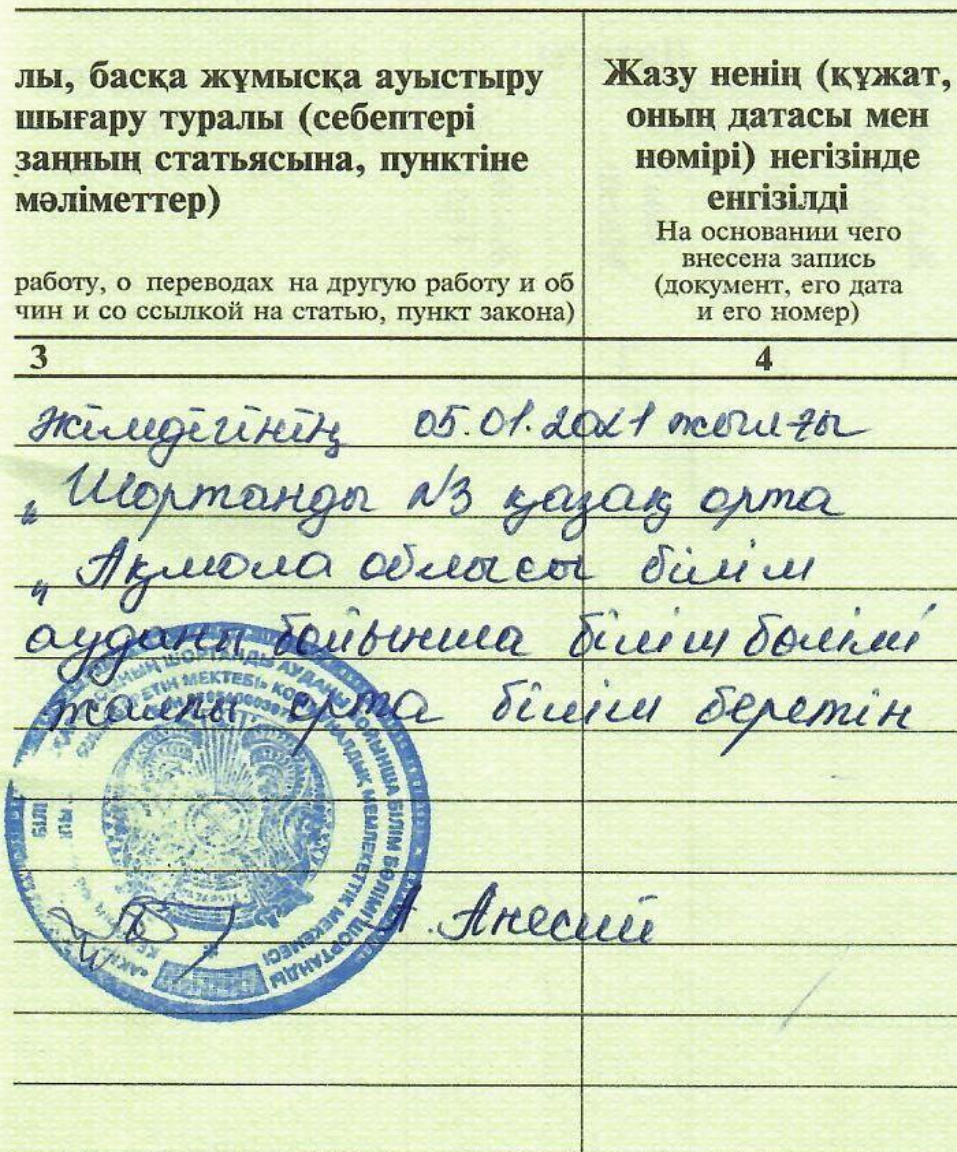 лы, басқа жұмысқа ауыстыру
шығару туралы (себептері
заңның статьясына, пунктіне
мәліметтер)
работу, о переводах на другую работу и об
чин и со ссылкой на статью, пункт закона)
Жазу ненің (құжат,
оның датасы мен
нөмірі) негізінде
енгізілді
На основании чего
внесена запись
(документ, его дата
и его номер)
3
4
кімдігінің 05.01.2021 жылғы
„ Шортанды №3 қазақ орта
„ Ақмола облысы білім
ауданы бойынша білім бөлімі
жалпы орта білім беретін
ШОРТАНДЫ АУДАНЫ БОЙЫНША БІЛІМ БӨЛІМІ ШОРТАНДЫ
БЕРЕТІН МЕКТЕБІ» КОММУНАЛДЫҚ МЕМЛЕКЕТТІК МЕКЕМЕСІ
А. Анесий